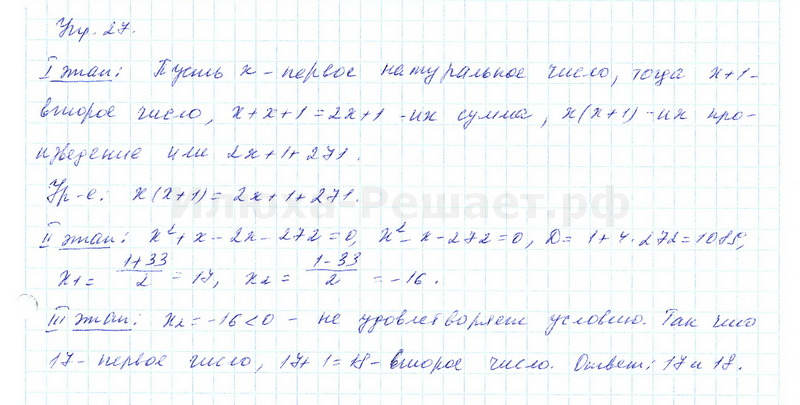 Упр. 27.
I этап: Пусть x – первое натуральное число, тогда x+1 –
второе число, x+x+1=2x+1 – их сумма, x(x+1) – их про-
изведение или 2x+1+271.
Ур-е: x(x+1)=2x+1+271.
Илюха-Решает.рф
II этап: x²+x-2x-272=0, x²-x-272=0, D=1+4·272=1089,
x₁= (1+33)/2 =17, x₂= (1-33)/2 =-16.
III этап: x₂=-16<0 – не удовлетворяет условию. Так что
17 – первое число, 17+1=18 – второе число. Ответ: 17 и 18.